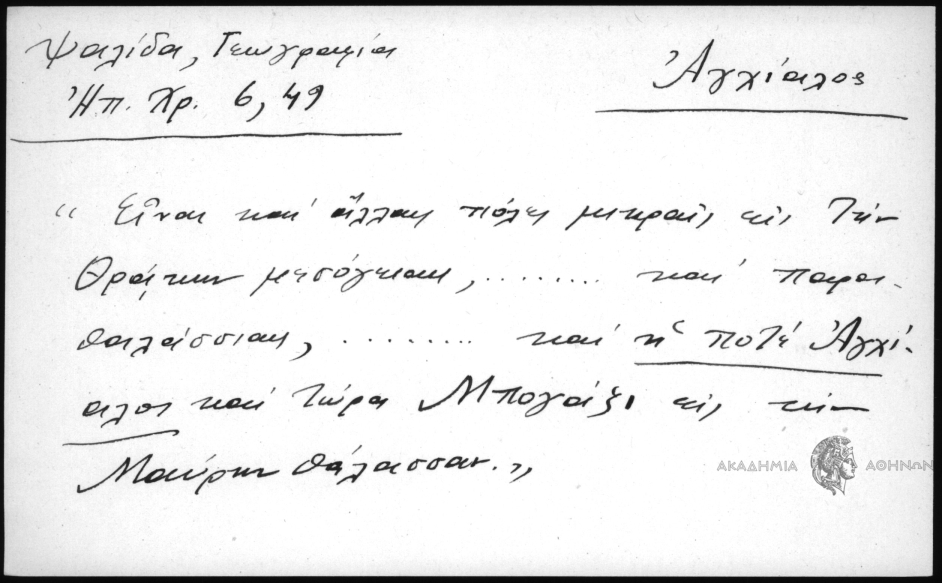 Ψαλίδα, Γεωγραφία
Ἠπ. Χρ. 6, 49
Ἀγχίαλος
“ Εἶναι καὶ ἄλλαι πόλεις μικραὶ εἰς τὴν
Θρᾴκην μεσόγειαι, ......... καὶ παρα-
θαλάσσιαι, ......... καὶ ἡ ποτὲ Ἀγχί-
αλος καὶ τώρα Μπογάζι εἰς τὴν
Μαύρην θάλασσαν. „
ΑΚΑΔΗΜΙΑ ΑΘΗΝΩΝ